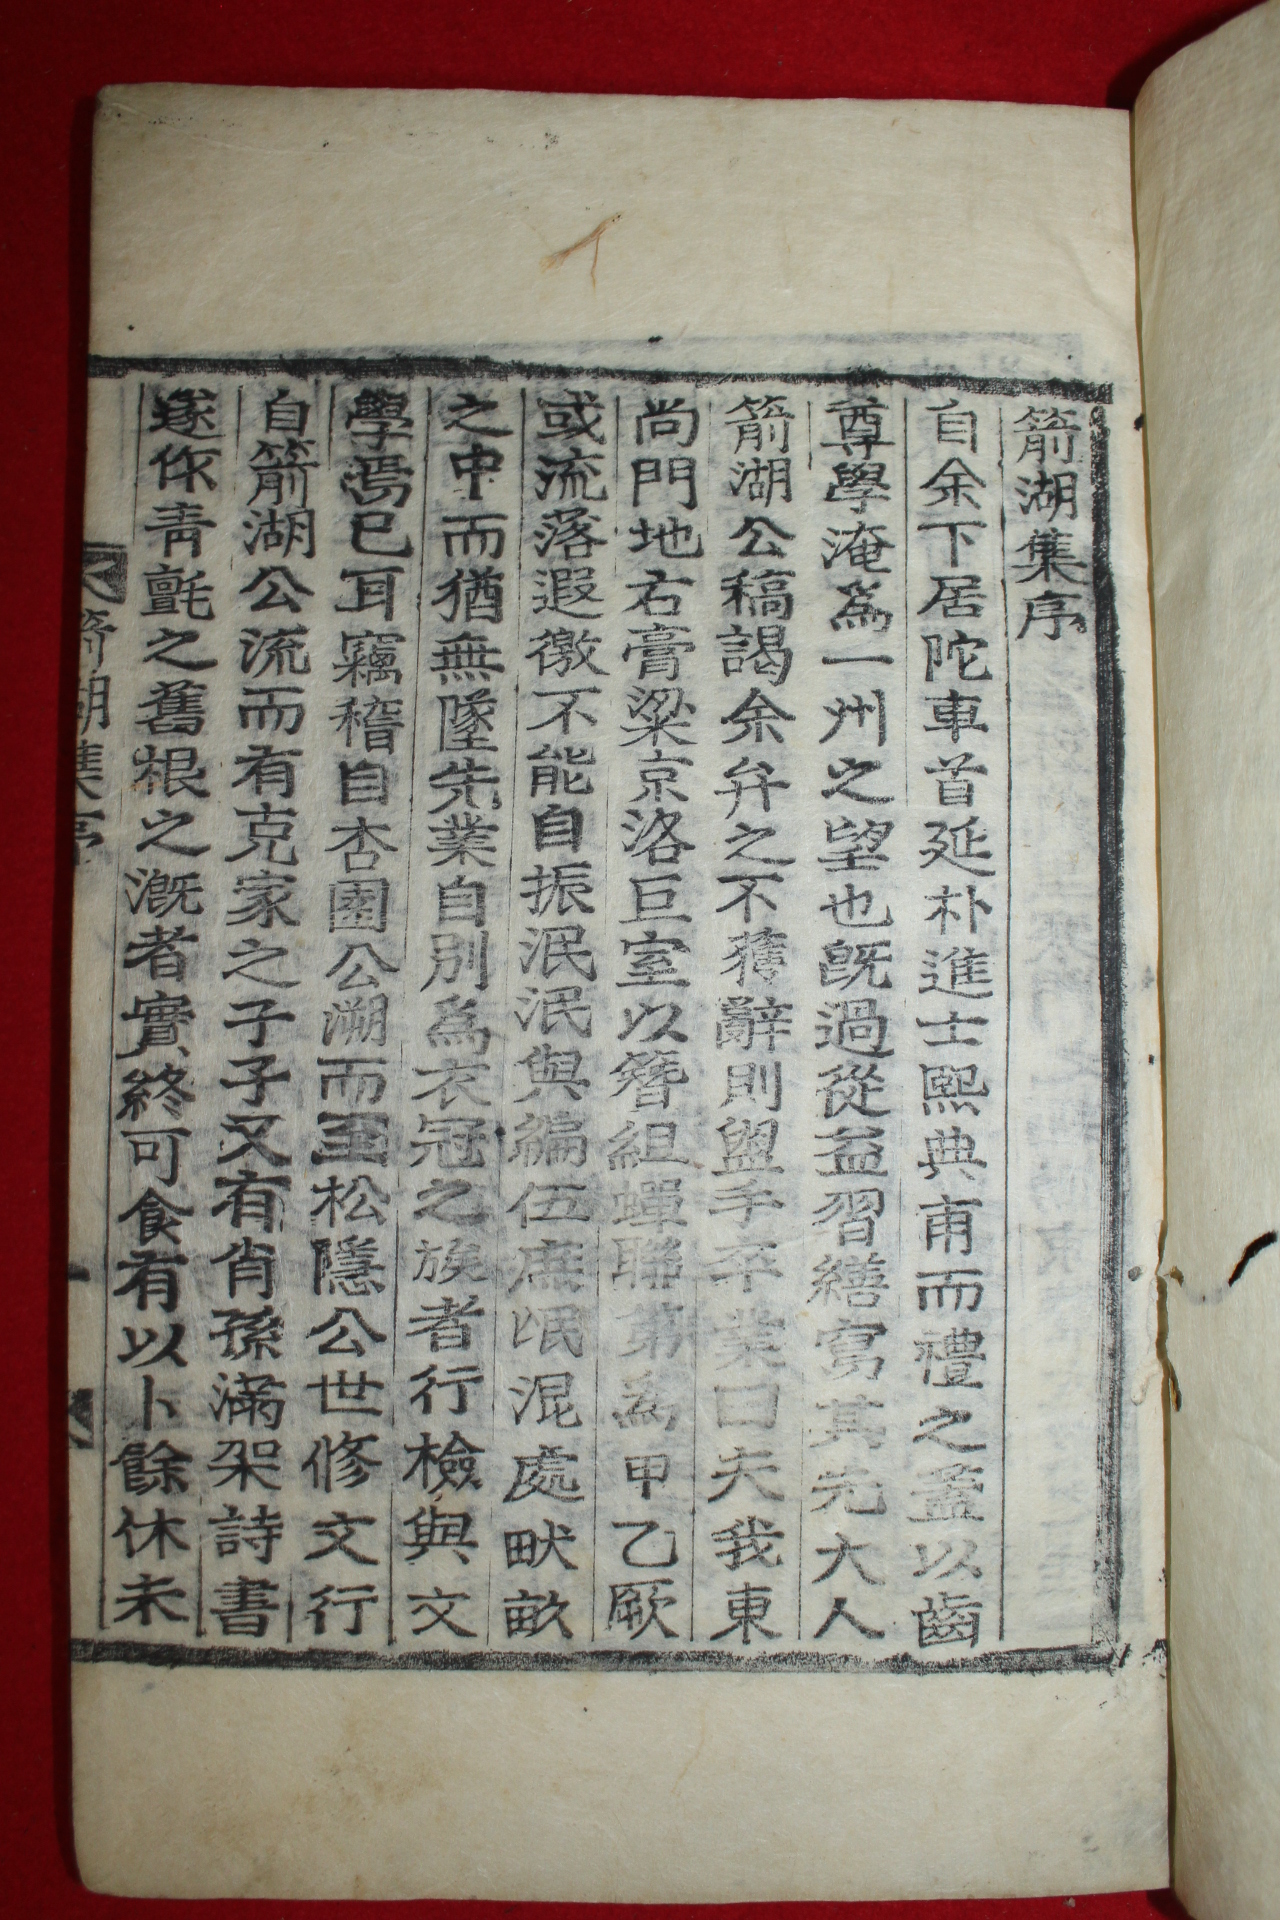 箭湖集序
自余下居陀車首延朴進士熙典甫而禮之盖以齒
尊學淹爲一州之望也旣過從益習繕寫其先大人
箭湖公稿謁余弁之不獲辭則盥手卒業曰夫我東
尚門地右膏粱京洛巨室以簪組蟬聯第爲甲乙厥
或流落遐徼不能自振泯泯與編伍庶氓混處畎畝
之中而猶無墜先業自別爲衣冠之族者行檢與文
學焉已耳竊稽自杏園公溯而至松隱公世修文行
自箭湖公流而有克家之子子又有肖孫滿架詩書
遂作靑氈之舊根之漑者實終可食有以卜餘休未
箭湖集序